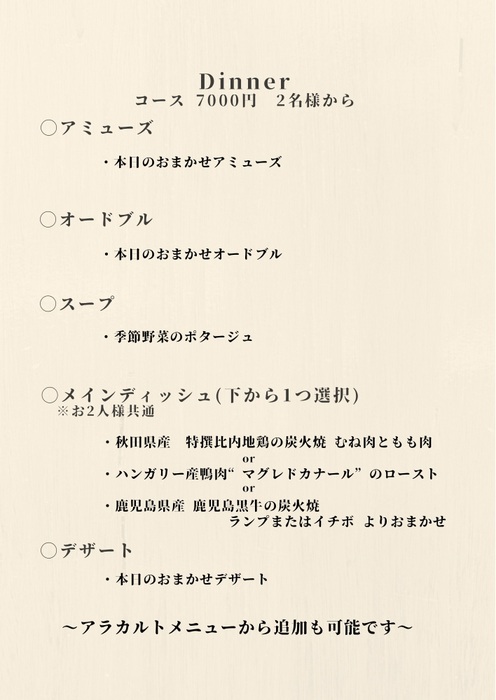 Dinner
コース 7000円 2名様から
〇アミューズ
・本日のおまかせアミューズ
〇オードブル
・本日のおまかせオードブル
〇スープ
・季節野菜のポタージュ
〇メインディッシュ(下から1つ選択)
※お2人様共通
・秋田県産 特撰比内地鶏の炭火焼 むね肉ともも肉
or
・ハンガリー産鴨肉“マグレドカナール”のロースト
or
・鹿児島県産 鹿児島黒牛の炭火焼
ランプまたはイチボ よりおまかせ
〇デザート
・本日のおまかせデザート
～アラカルトメニューから追加も可能です～